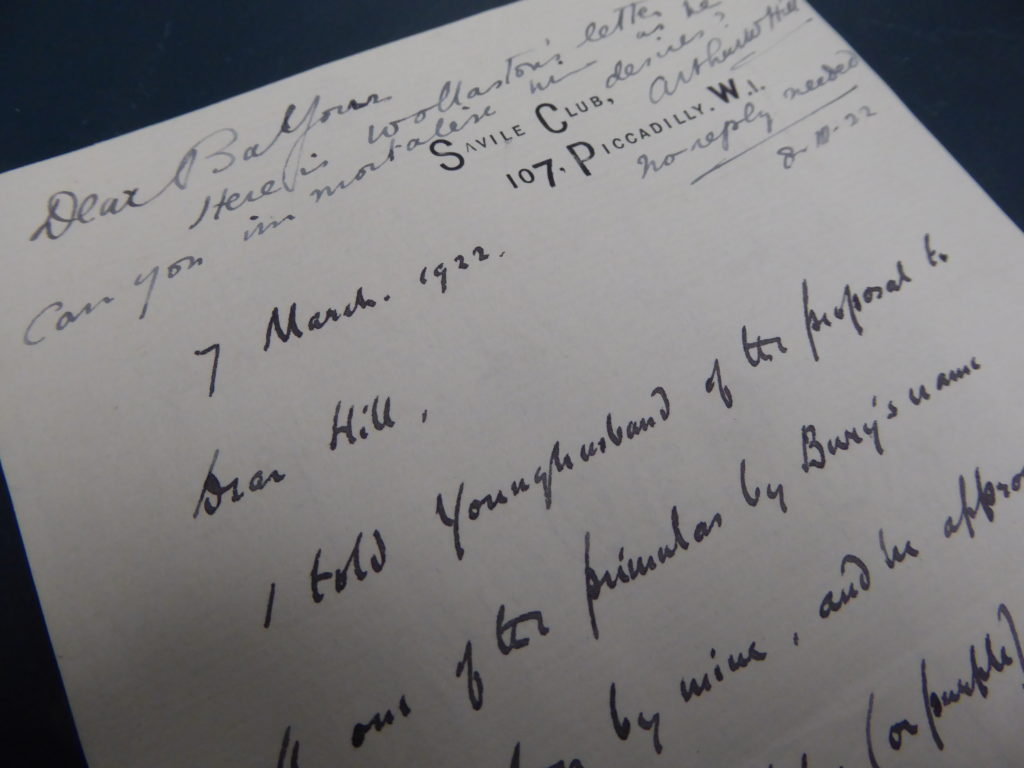 Dear Balfour
Here is Wollaston's letter
Can you immortalise him as he desires?
Arthur W Hill
no reply needed
8-III-22
SAVILE CLUB,
107, PICCADILLY. W.1.
7 March. 1922.
Dear Hill,
I told Younghusband of the proposal to
one of the primulas by Bury's name
by mine, and he appro
(or purple)